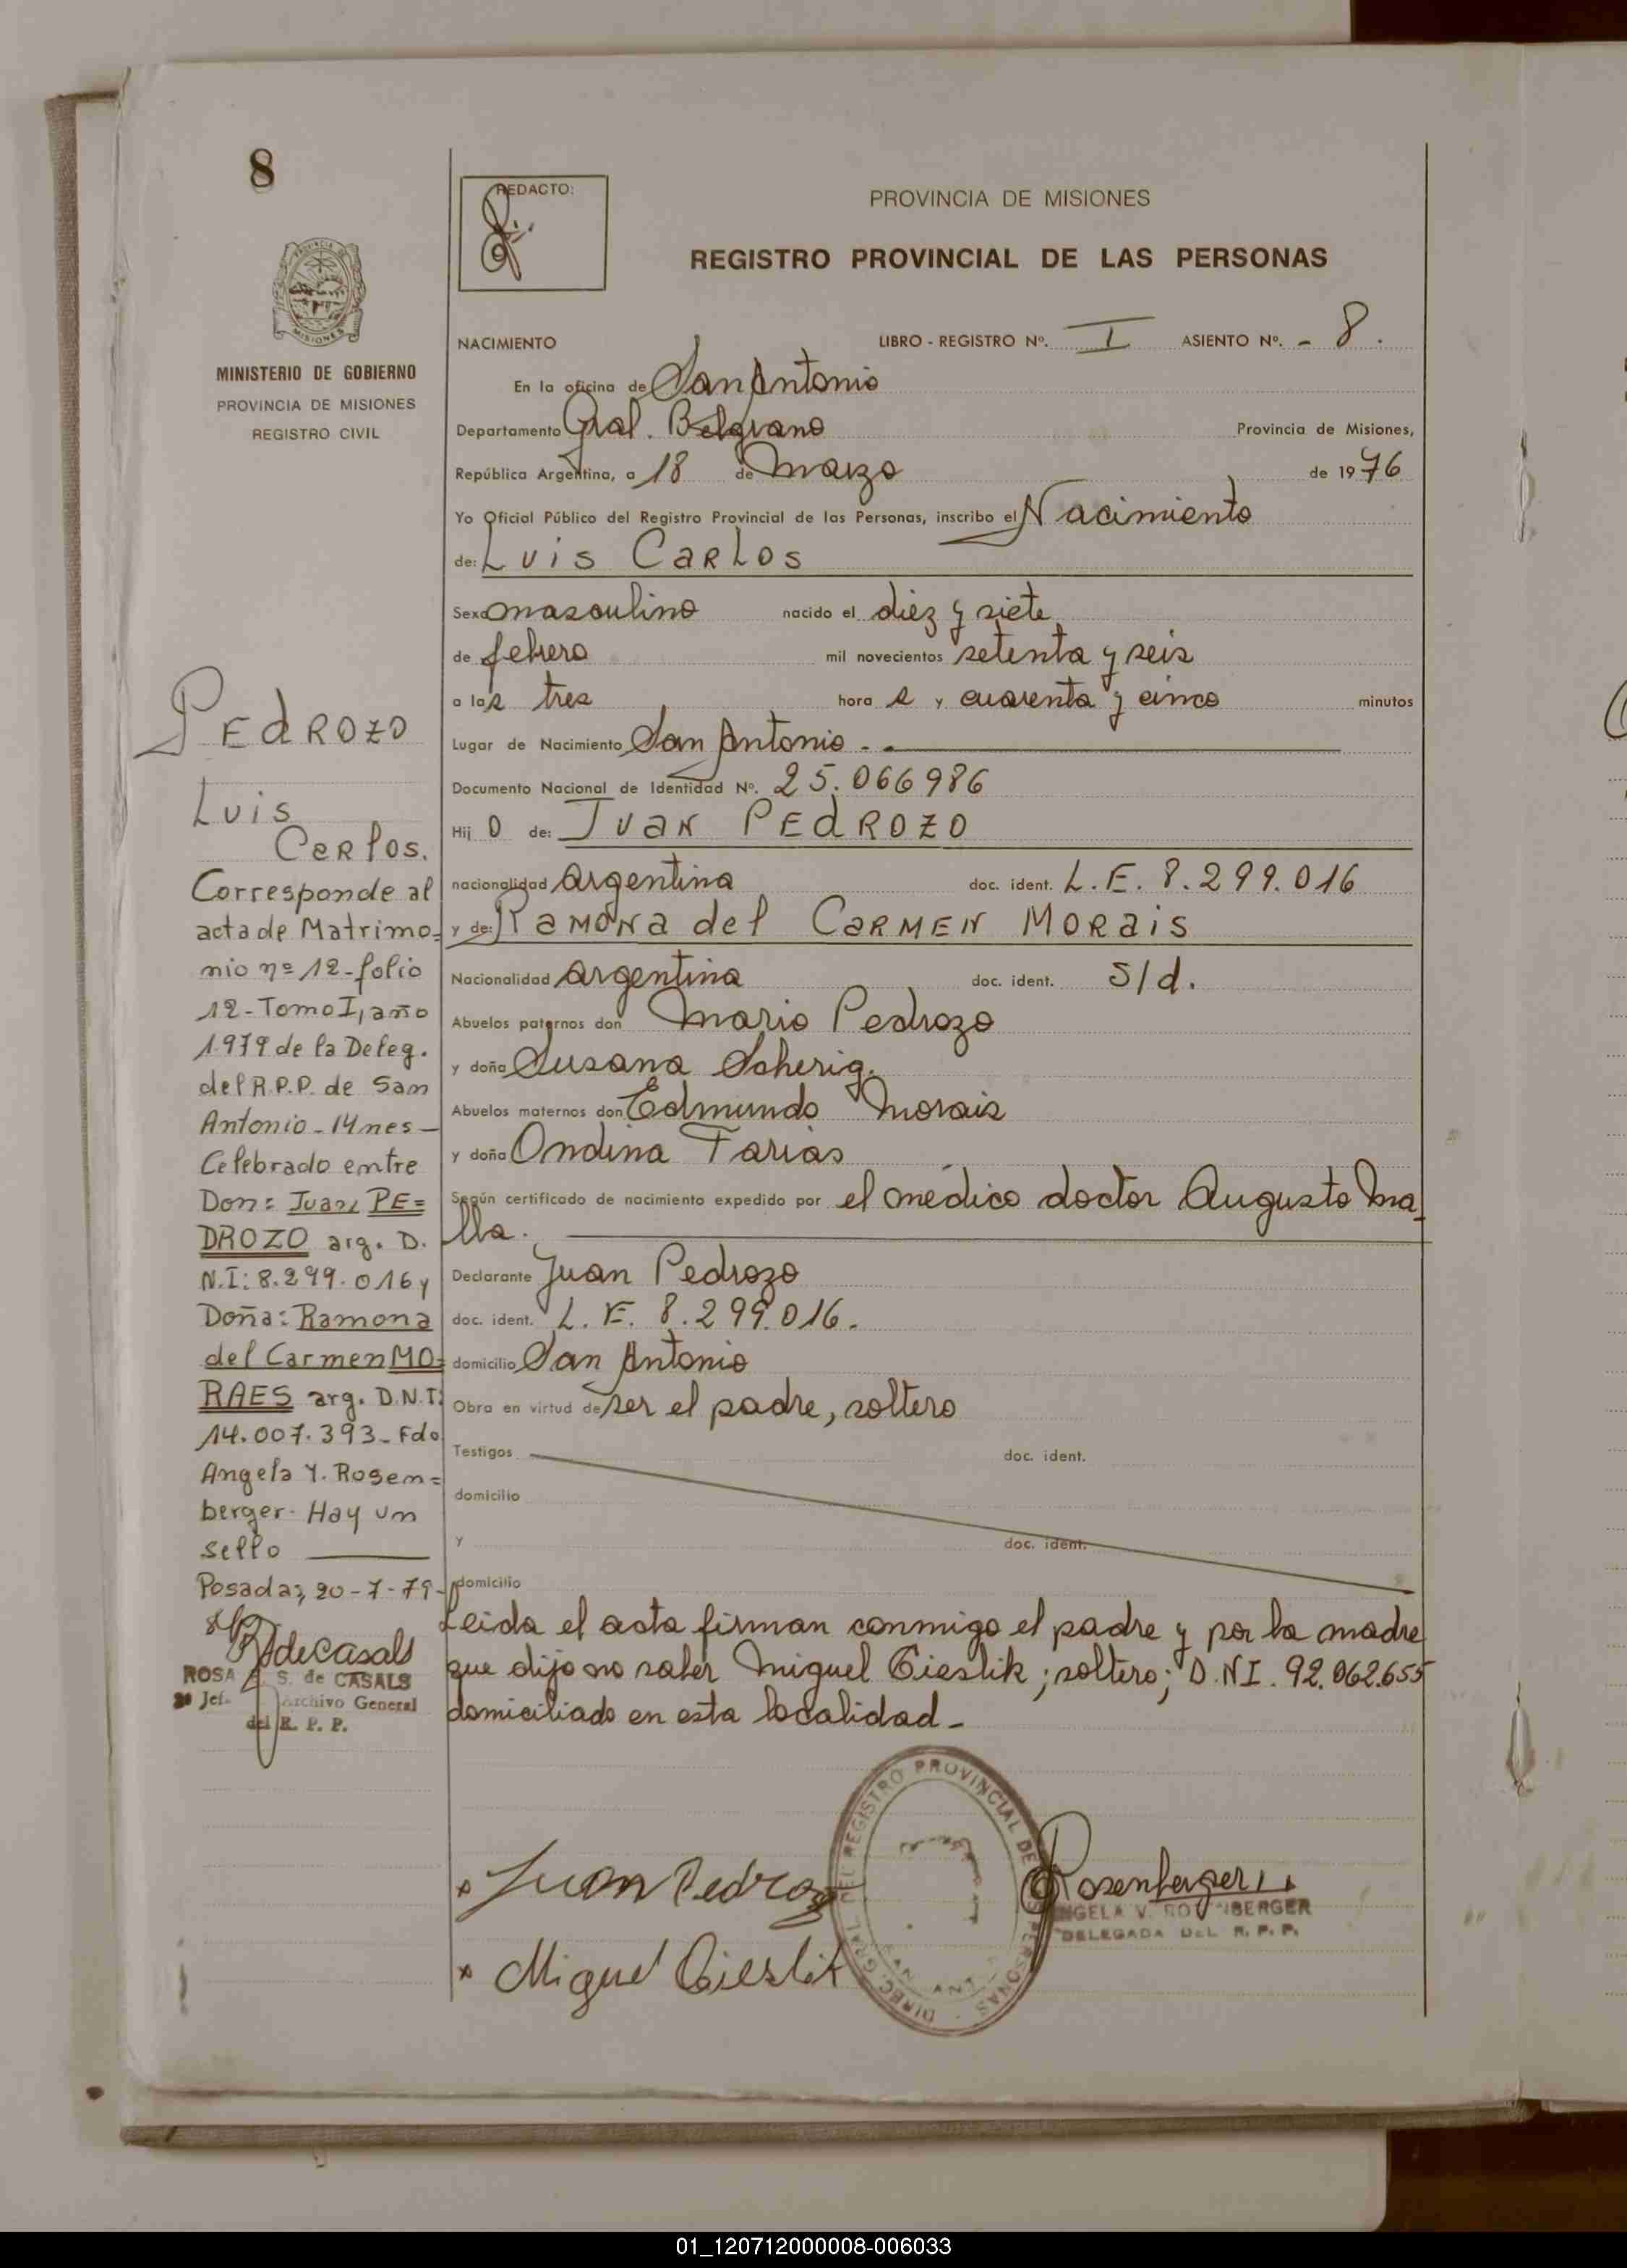 8
MINISTERIO DE GOBIERNO
PROVINCIA DE MISIONES
REGISTRO CIVIL
PEdROZO
Luis
CeRlos.
Corresponde al
acta de Matrimo=
nio nº 12-folio
12-Tomo I, año
1979 de la Deleg.
del R.P.P. de San
Antonio - Mnes -
Celebrado entre
Don: Juan PE=
DROZO arg. D.
N.I: 8.299.016 y
Doña: Ramona
del Carmen MO=
RAES arg. D.N.I:
14.007.393- Fdo
Angela Y. Rosem=
berger- Hay un
sello
Posadas, 20-7-79-
RdeCasals
ROSA S. de CASALS
Archivo General
del R. P. P.
REDACTO:
PROVINCIA DE MISIONES
REGISTRO PROVINCIAL DE LAS PERSONAS
NACIMIENTO LIBRO - REGISTRO Nº. I ASIENTO Nº. - 8.
En la oficina de San Antonio
Departamento Gral. Belgrano Provincia de Misiones,
República Argentina, a 18 de Marzo de 1976
Yo Oficial Público del Registro Provincial de las Personas, inscribo el Nacimiento
de: Luis CaRLos
Sexo masculino nacido el diez y siete
de febrero mil novecientos setenta y seis
a las tres hora s y cuarenta y cinco minutos
Lugar de Nacimiento San Antonio - .
Documento Nacional de Identidad Nº. 25.066986
Hij o de: Juan PEdROZO
nacionalidad argentina doc. ident. L.E. 8.299.016
y de: Ramona del CARMEN MORais
Nacionalidad argentina doc. ident. s/d.
Abuelos paternos don Mario Pedrozo
y doña Susana Scherig.
Abuelos maternos don Edmundo Morais
y doña Ondina Farias
Según certificado de nacimiento expedido por el médico doctor Augusto Ma-
lla.
Declarante Juan Pedrozo
doc. ident. L. E. 8.299.016.
domicilio San Antonio
Obra en virtud de ser el padre, soltero
Testigos doc. ident.
domicilio
y doc. ident.
domicilio
Leida el acta firman conmigo el padre y por la madre
que dijo no saber Miguel Cieslik; soltero; D.N.I. 92.062.655
domiciliado en esta localidad-
x Juan Pedrozo
x Miguel Cieslik
DIREC. GRAL. DEL REGISTRO PROVINCIAL DE LAS PERSONAS
Rosenberger
ANGELA V. ROSENBERGER
DELEGADA DEL R. P. P.
01_120712000008-006033